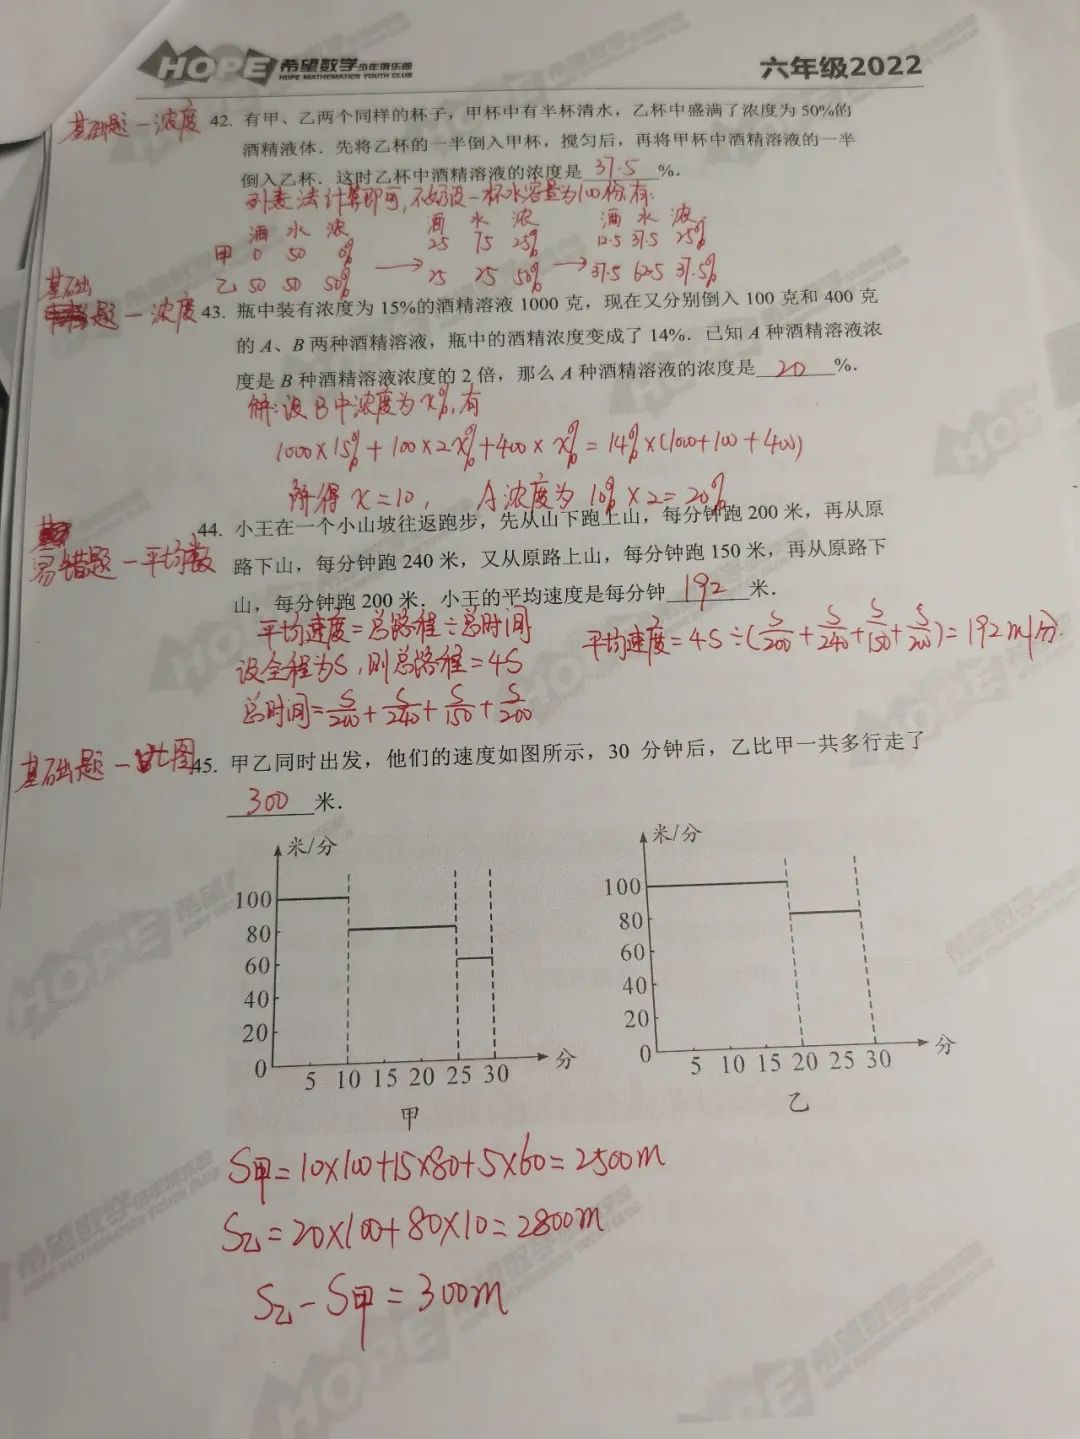 HOPE 希望数学 少年俱乐部
HOPE MATHEMATICS YOUTH CLUB
六年级2022
基础题－浓度
42. 有甲、乙两个同样的杯子，甲杯中有半杯清水，乙杯中盛满了浓度为 50%的
酒精液体．先将乙杯的一半倒入甲杯，搅匀后，再将甲杯中酒精溶液的一半
倒入乙杯．这时乙杯中酒精溶液的浓度是 37.5 %．
列表法计算即可,不妨设一杯水容量为100份,有:
酒 水 浓 酒 水 浓 酒 水 浓
甲 0 50 0% 25 75 25% 12.5 37.5 25%
乙 50 50 50% → 25 25 50% → 37.5 62.5 37.5%
基础
题－浓度
43. 瓶中装有浓度为 15%的酒精溶液 1000 克，现在又分别倒入 100 克和 400 克
的 A、B 两种酒精溶液，瓶中的酒精浓度变成了 14%．已知 A 种酒精溶液浓
度是 B 种酒精溶液浓度的 2 倍，那么 A 种酒精溶液的浓度是 20 %．
解:设B中浓度为x%,有
1000×15%+100×2x%+400×x%=14%×(1000+100+400)
解得 x=10, A浓度为10%×2=20%
易错题－平均数
44. 小王在一个小山坡往返跑步，先从山下跑上山，每分钟跑 200 米，再从原
路下山，每分钟跑 240 米，又从原路上山，每分钟跑 150 米，再从原路下
山，每分钟跑 200 米．小王的平均速度是每分钟 192 米．
平均速度=总路程÷总时间
设全程为S,则总路程=4S
总时间=S/200+S/240+S/150+S/200
平均速度=4S÷(S/200+S/240+S/150+S/200)=192m/分
基础题－比图
45. 甲乙同时出发，他们的速度如图所示，30 分钟后，乙比甲一共多行走了
300 米．
米/分
100
80
60
40
20
0
5 10 15 20 25 30 分
甲
米/分
100
80
60
40
20
0
5 10 15 20 25 30 分
乙
S甲=10×100+15×80+5×60=2500m
S乙=20×100+80×10=2800m
S乙-S甲=300m